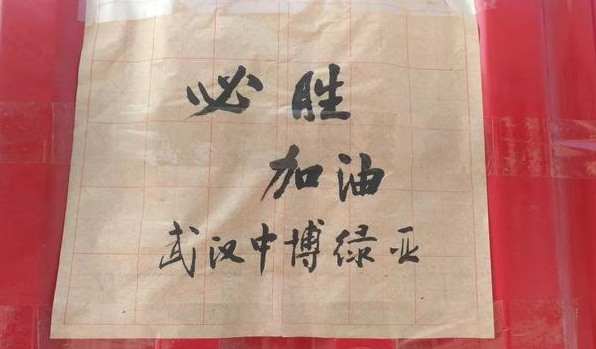 必胜
加油
武汉中博绿亚